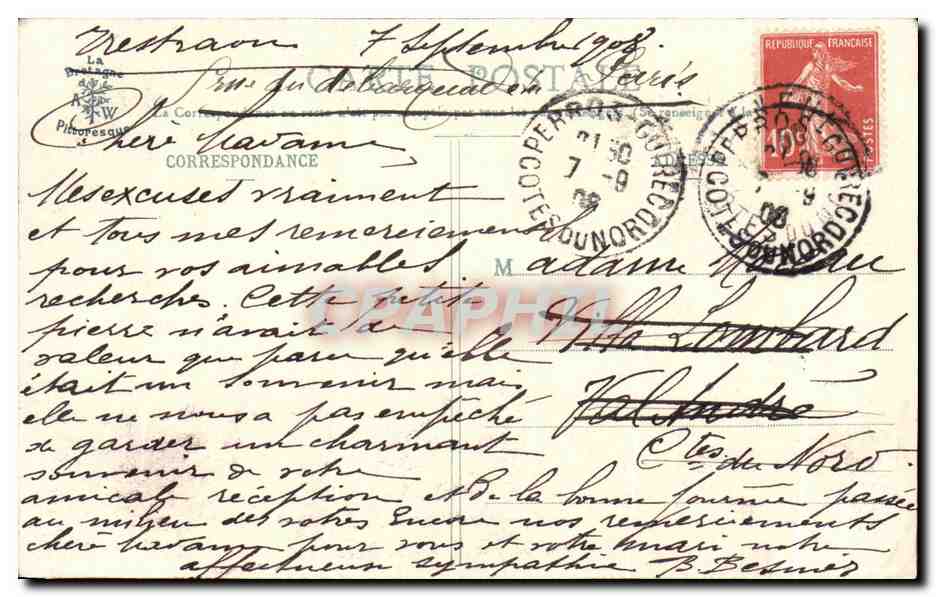 Trestraou 7 Septembre 1908.
La
Bretagne
A W
Pittoresque
CARTE POSTALE
rue du débarquement Paris
RÉPUBLIQUE FRANÇAISE
10c
POSTES
Chère Madame,
CORRESPONDANCE
ADRESSE
PERROS-GUIREC
21 30
7 -9
08
COTES DU NORD
PERROS-GUIREC
7 -9
08
COTES DU NORD
Mes excuses vraiment
et tous mes remerciements
pour vos aimables
recherches. Cette petite
pierre n'avait de
valeur que parce qu'elle
était un souvenir mais
elle ne nous a pas empêché
de garder un charmant
souvenir de votre
amicale réception et de la bonne journée passée
au milieu des vôtres Encore nos remerciements
chère Madame pour vous et votre mari notre
affectueuse sympathie B Besnier
Madame
Villa Lombard
Val André
Ctes du Nord.
CPAPHIL